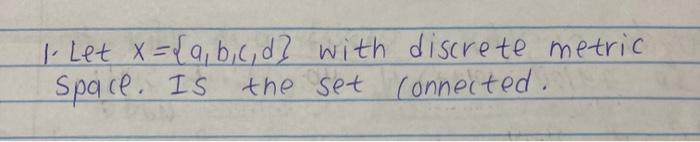 1. Let x={a,b,c,d} with discrete metric
space. Is the set connected.